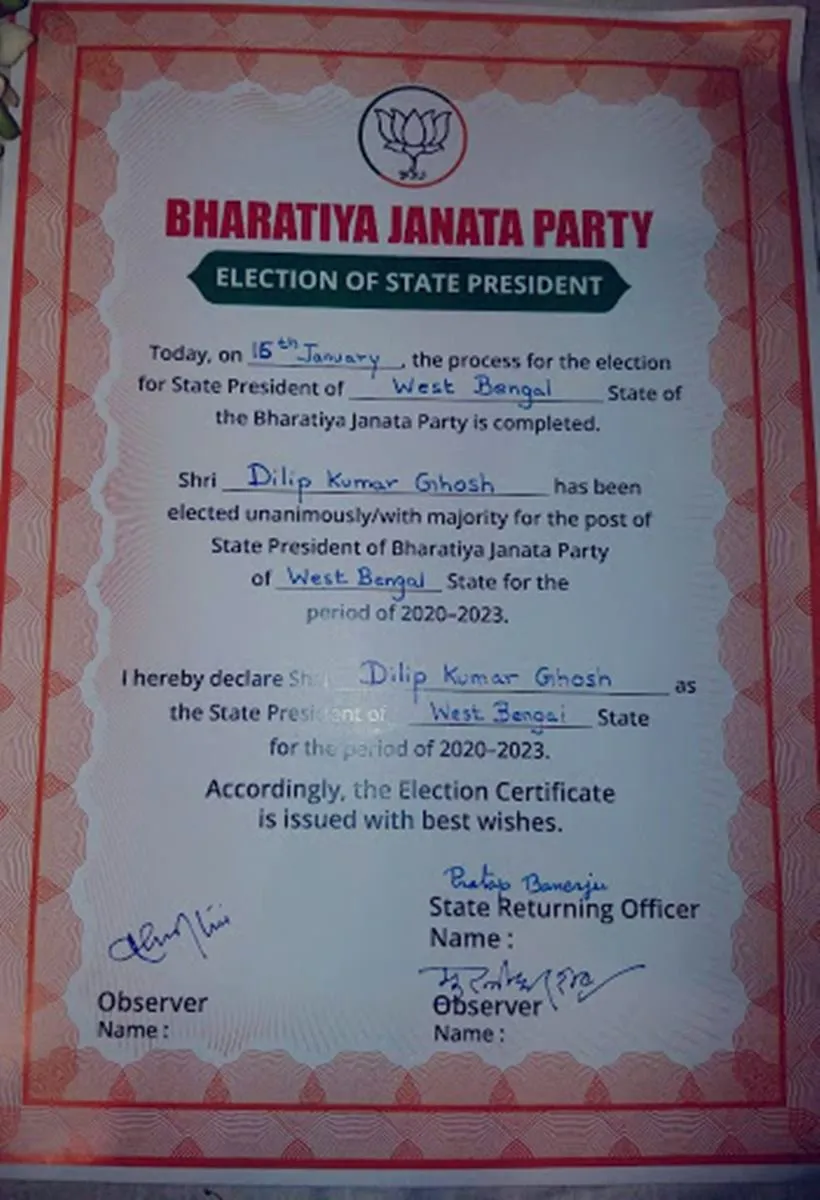 BHARATIYA JANATA PARTY
ELECTION OF STATE PRESIDENT
Today, on 16th January, the process for the election
for State President of West Bengal State of
the Bharatiya Janata Party is completed.
Shri Dilip Kumar Ghosh has been
elected unanimously/with majority for the post of
State President of Bharatiya Janata Party
of West Bengal State for the
period of 2020–2023.
I hereby declare Shri Dilip Kumar Ghosh as
the State President of West Bengal State
for the period of 2020–2023.
Accordingly, the Election Certificate
is issued with best wishes.
Pratap Banerjee
State Returning Officer
Name :
Observer
Name :
Observer
Name :